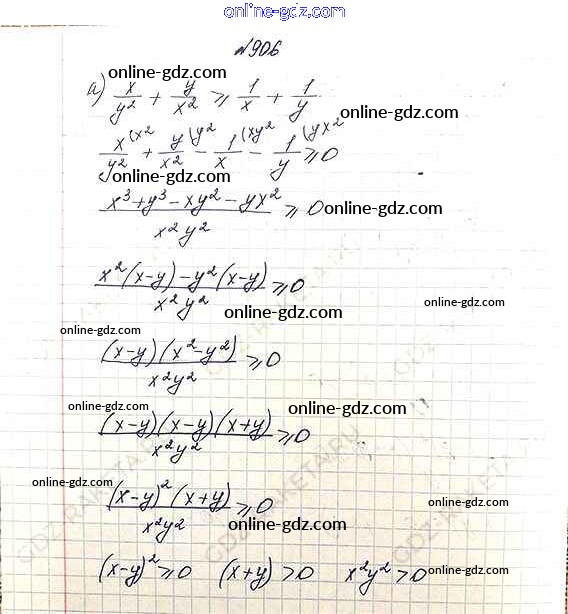 online-gdz.com
№906
online-gdz.com
а) x/y² + y/x² ⩾ 1/x + 1/y
online-gdz.com
x\x²/y² + y\y²/x² − 1\xy²/x − 1\yx²/y ⩾ 0
online-gdz.com
(x³+y³−xy²−yx²)/(x²y²) ⩾ 0
online-gdz.com
(x²(x−y)−y²(x−y))/(x²y²) ⩾ 0
online-gdz.com
online-gdz.com
((x−y)(x²−y²))/(x²y²) ⩾ 0
online-gdz.com
online-gdz.com
online-gdz.com
((x−y)(x−y)(x+y))/(x²y²) ⩾ 0
online-gdz.com
((x−y)²(x+y))/(x²y²) ⩾ 0
online-gdz.com
online-gdz.com
(x−y)² ⩾ 0 (x+y) > 0 x²y² > 0
online-gdz.com